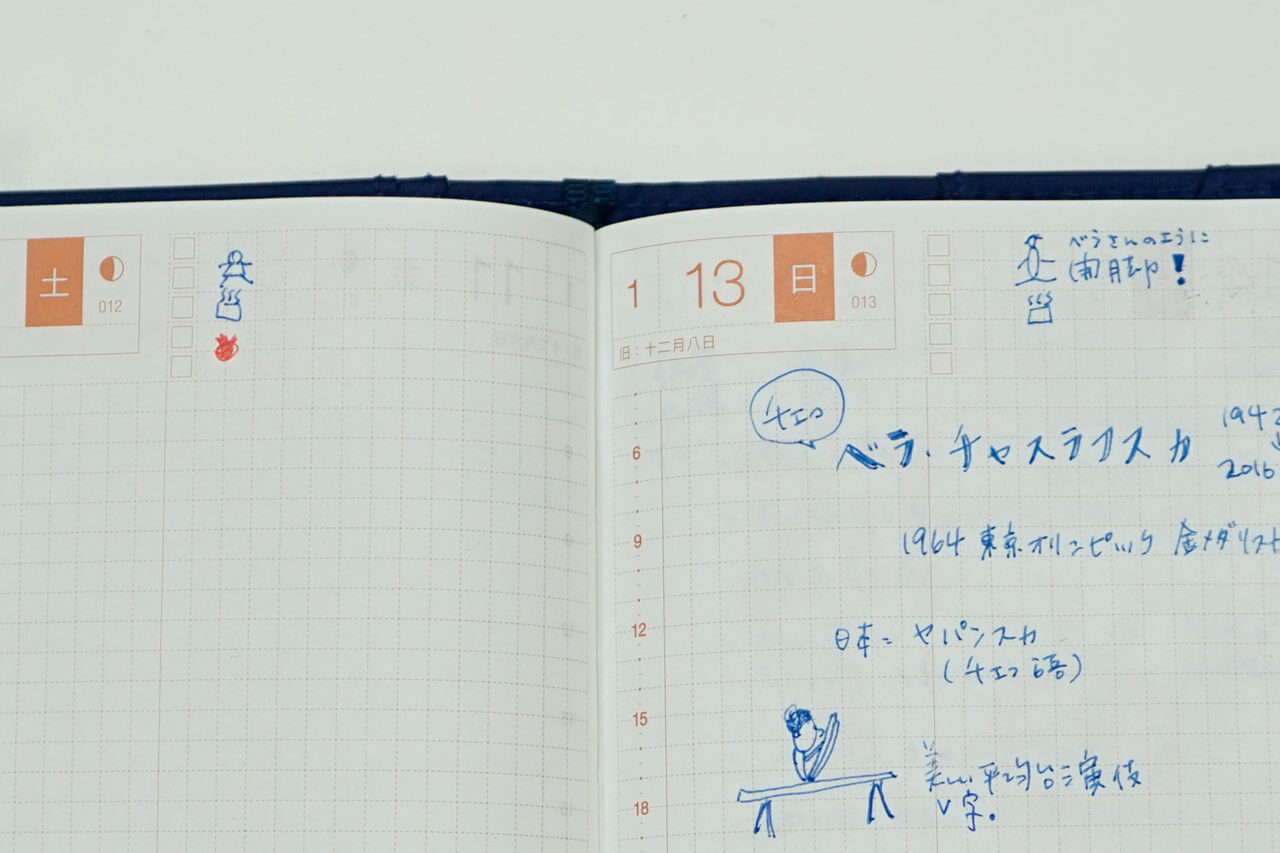 土
012
1 13 日
013
旧：十二月八日
ベラさんのように
開脚！
チェコ
ベラ・チャスラフスカ
1942
2016
6
1964 東京オリンピック 金メダリスト
9
日本＝ヤパンスカ
12
（チェコ語）
15
美しい平均台演技
V字。
18